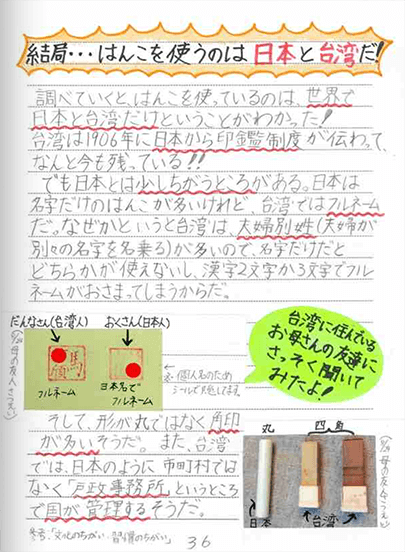 結局・・・はんこを使うのは日本と台湾だ!
調べていくと、はんこを使っているのは、世界で
日本と台湾だけということがわかった!
台湾は1906年に日本から印鑑制度が伝わって、
なんと今も残っている!!
でも日本とは少しちがうところがある。日本は
名字だけのはんこが多いけれど、台湾ではフルネーム
だ。なぜかというと台湾は、夫婦別姓(夫婦が
別々の名字を名乗る)が多いので、名字だけだと
どちらかが使えないし、漢字2文字か3文字でフル
ネームがおさまってしまうからだ。
だんなさん(台湾人)
おくさん(日本人)
フルネーム
日本名で
フルネーム
個人名のため
シールでかくしてます。
台湾に住んでいる
お母さんの友達に
さっそく聞いて
みたよ!
そして、形が丸ではなく角印
が多いそうだ。また、台湾
では、日本のように市町村では
なく「戸政事務所」というところ
で国が管理するそうだ。
丸
四角
日本
台湾
参考:「文化のちがい・習慣のちがい」
36